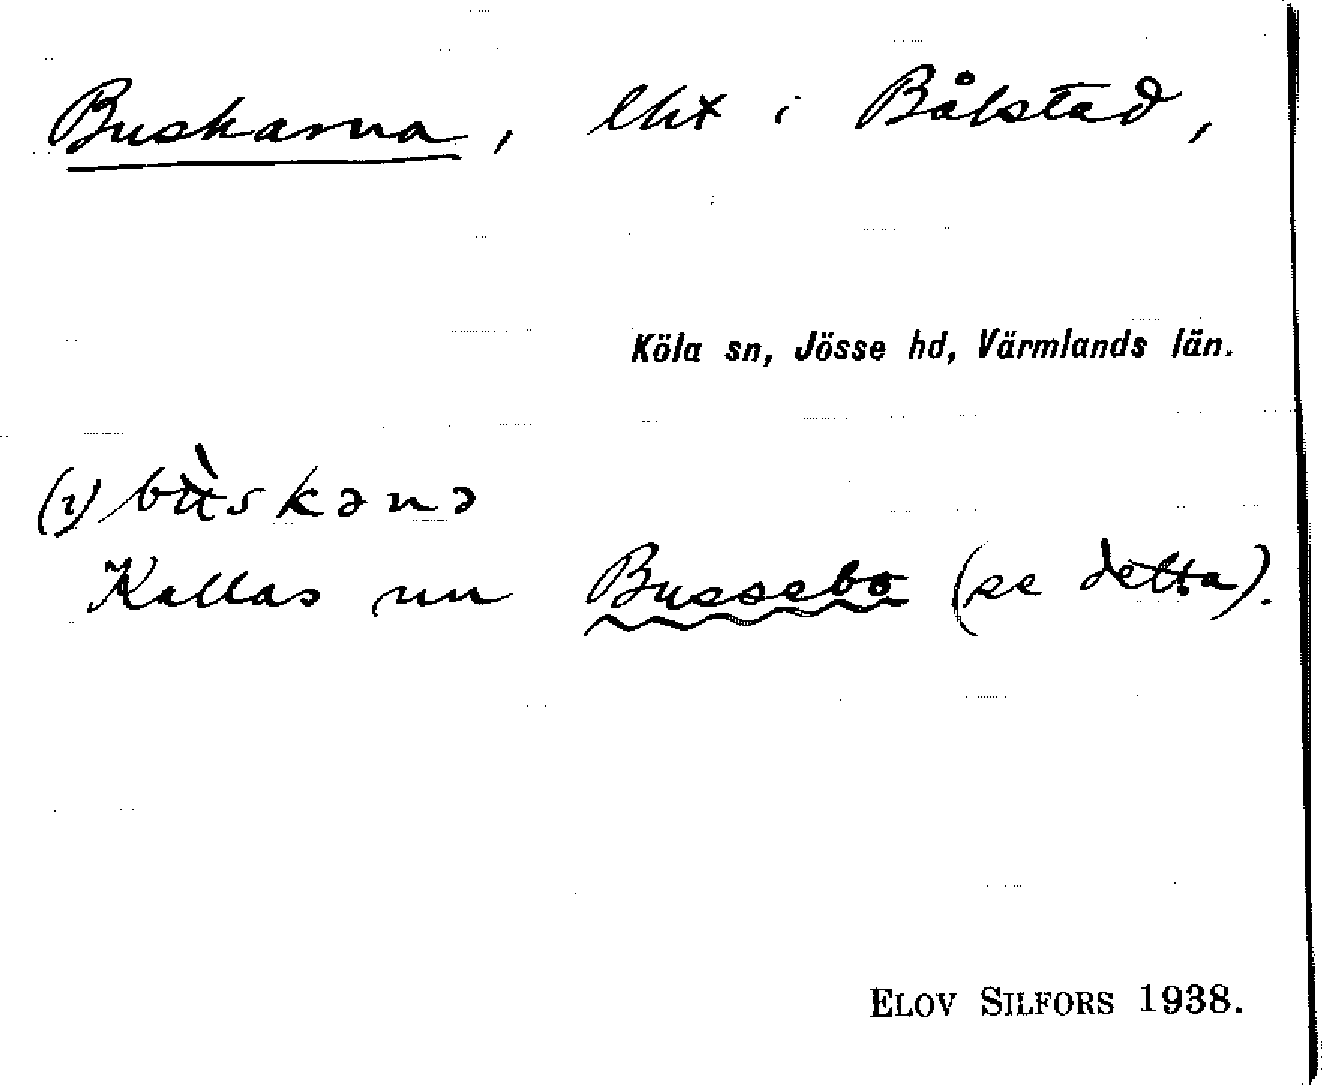 Buskarna, lht i Bålstad,
Köla sn, Jösse hd, Värmlands län.
(i) bùskənə
Kallas nu Bussebo (se detta).
ELOV SILFORS 1938.